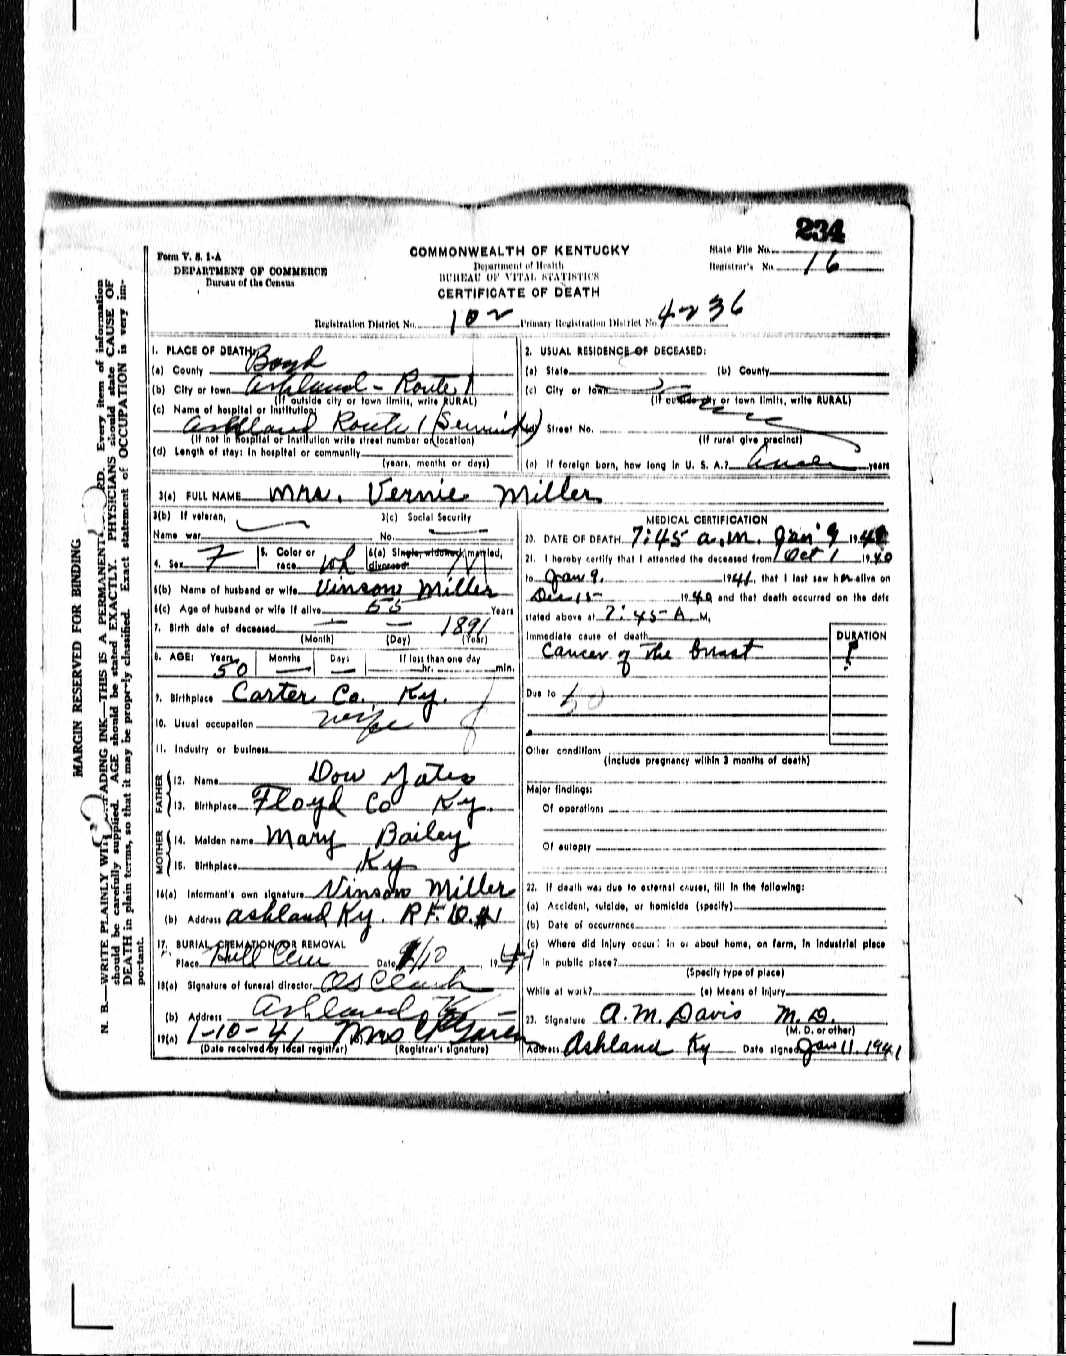 234
Form V. S. 1-A
DEPARTMENT OF COMMERCE
Bureau of the Census
COMMONWEALTH OF KENTUCKY
Department of Health
BUREAU OF VITAL STATISTICS
CERTIFICATE OF DEATH
State File No.
Registrar's No. 16
Registration District No. 102 Primary Registration District No. 4236
MARGIN RESERVED FOR BINDING
N. B.—WRITE PLAINLY ADING INK—THIS IS A PERMANENT RD. Every item of information
should be carefully supplied. AGE should be stated EXACTLY. PHYSICIANS should state CAUSE OF
DEATH in plain terms, so that it may be properly classified. Exact statement of OCCUPATION is very im-
portant.
1. PLACE OF DEATH:
(a) County Boyd
(b) City or town Ashland - Route 1
(If outside city or town limits, write RURAL)
(c) Name of hospital or institution:
Ashland Route 1
(If not in hospital or institution write street number or location)
(d) Length of stay: In hospital or community
(years, months or days)
2. USUAL RESIDENCE OF DECEASED:
(a) State (b) County
(c) City or town Same
(If outside city or town limits, write RURAL)
(d) Street No.
(If rural give precinct)
(e) If foreign born, how long in U. S. A.? years
3(a) FULL NAME Mrs. Vernie Miller
3(b) If veteran,
Name war
3(c) Social Security
No.
4. Sex F 5. Color or race wh 6(a) Single, widowed, married, divorced M
6(b) Name of husband or wife Vinson Miller
6(c) Age of husband or wife if alive 55 Years
7. Birth date of deceased — — 1891
(Month) (Day) (Year)
8. AGE: Years Months Days If less than one day
50 — — hr. min.
9. Birthplace Carter Co. Ky.
10. Usual occupation wife
11. Industry or business
FATHER
12. Name Dow Yates
13. Birthplace Floyd Co Ky.
MOTHER
14. Maiden name Mary Bailey
15. Birthplace Ky
16(a) Informant's own signature Vinson Miller
(b) Address Ashland Ky. R.F.D. #1
17. BURIAL, CREMATION OR REMOVAL
Place Hull Cem Date 1/10, 1941
18(a) Signature of funeral director
(b) Address Ashland Ky
19(a) 1-10-41 Mrs
(Date received by local registrar) (Registrar's signature)
MEDICAL CERTIFICATION
20. DATE OF DEATH 7:45 a.m. Jan 9 1941
21. I hereby certify that I attended the deceased from Oct 1 1940
to Jan 9, 1941, that I last saw her alive on
Dec 15 1940 and that death occurred on the date
stated above at 7:45 A M.
Immediate cause of death
Cancer of the breast
DURATION
?
Due to 50
Other conditions
(Include pregnancy within 3 months of death)
Major findings:
Of operations
Of autopsy
22. If death was due to external causes, fill in the following:
(a) Accident, suicide, or homicide (specify)
(b) Date of occurrence
(c) Where did injury occur: in or about home, on farm, in industrial place
in public place?
(Specify type of place)
While at work? (e) Means of Injury
23. Signature A. M. Davis M. D.
(M. D. or other)
Address Ashland Ky Date signed Jan 11, 1941